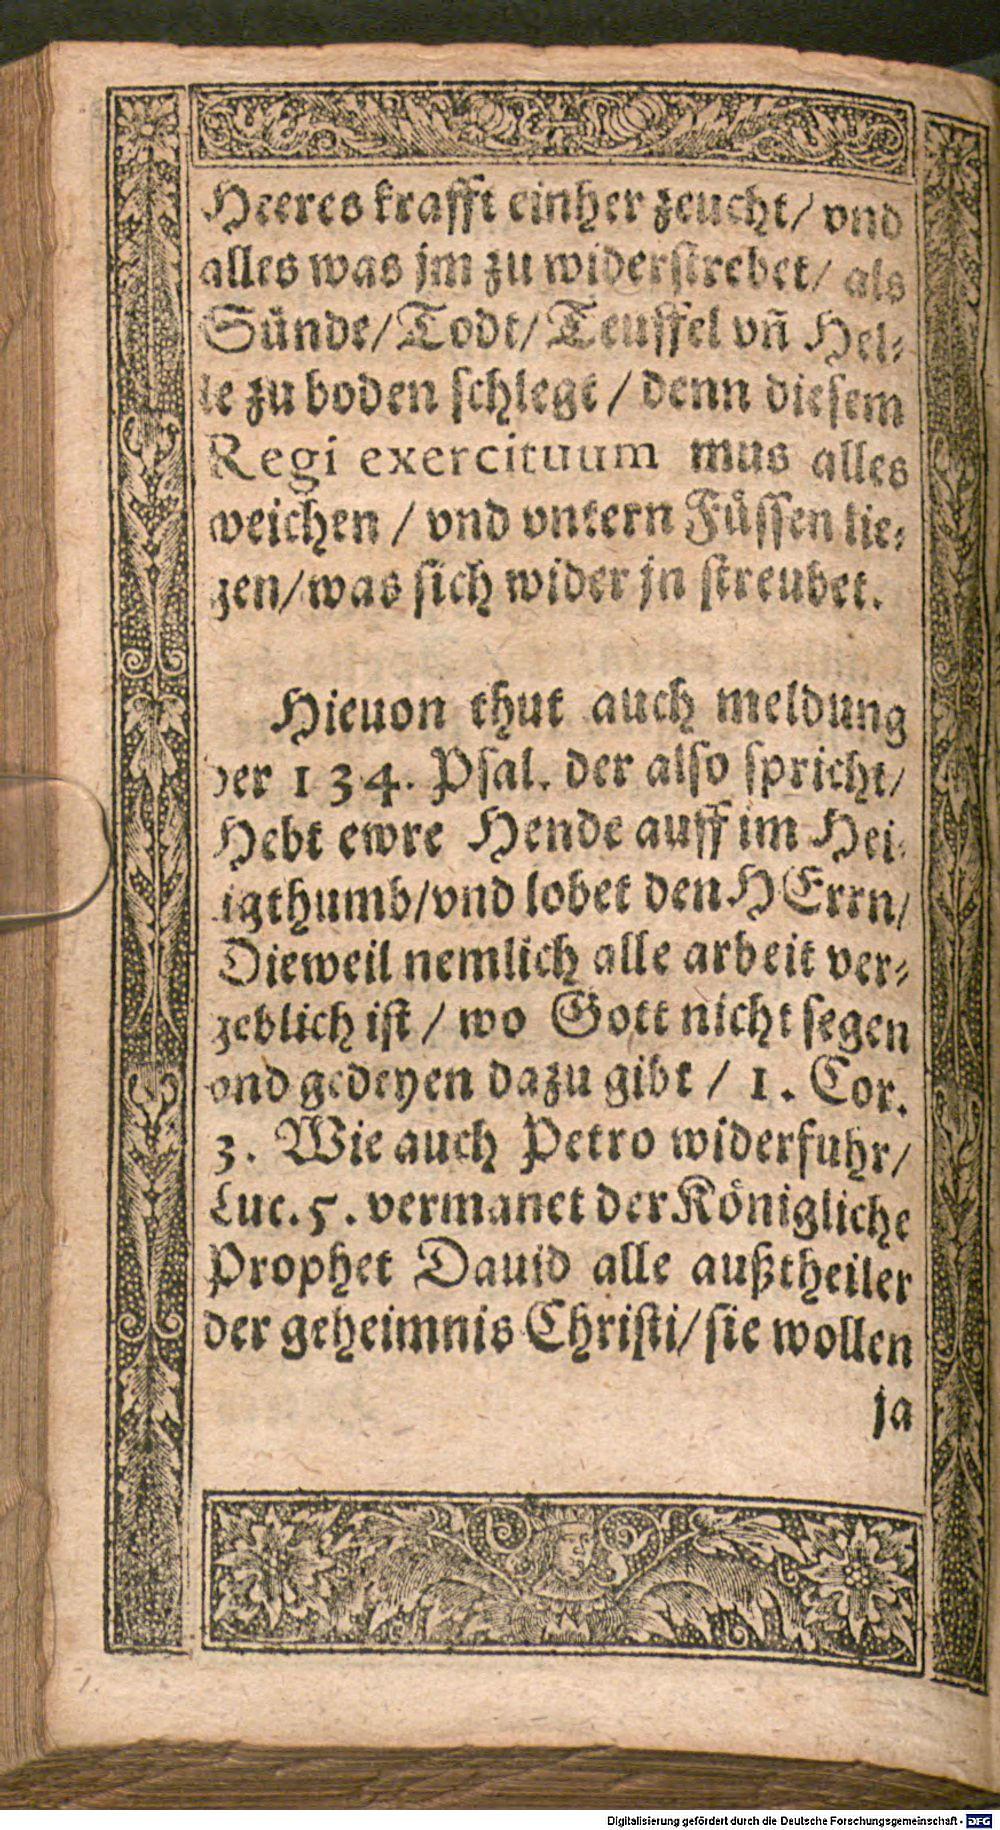 Heeres krafft einher zeucht/ vnd
alles was jm zu widerstrebet/ als
Sünde/ Todt/ Teuffel vñ Hel-
le zu boden schlegt / denn diesem
Regi exercituum mus alles
weichen / vnd vntern Füssen lie-
gen/ was sich wider jn streubet.
Hieuon thut auch meldung
der 134. Psal. der also spricht/
Hebt ewre Hende auff im Hei-
ligthumb/ vnd lobet den HErrn/
Dieweil nemlich alle arbeit ver-
geblich ist / wo Gott nicht segen
vnd gedeyen dazu gibt / 1. Cor.
3. Wie auch Petro widerfuhr/
Luc. 5. vermanet der Königliche
Prophet Dauid alle außtheiler
der geheimnis Christi/ sie wollen
ja
Digitalisierung gefördert durch die Deutsche Forschungsgemeinschaft - DFG